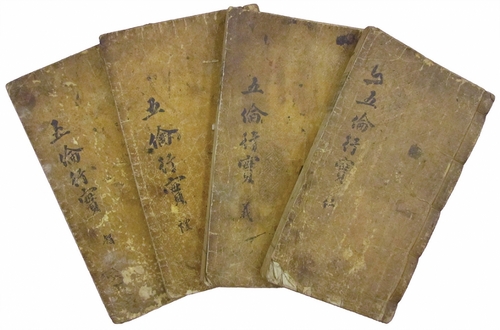 与五倫行實 仁
五倫行實 義
五倫行實 禮
五倫行實